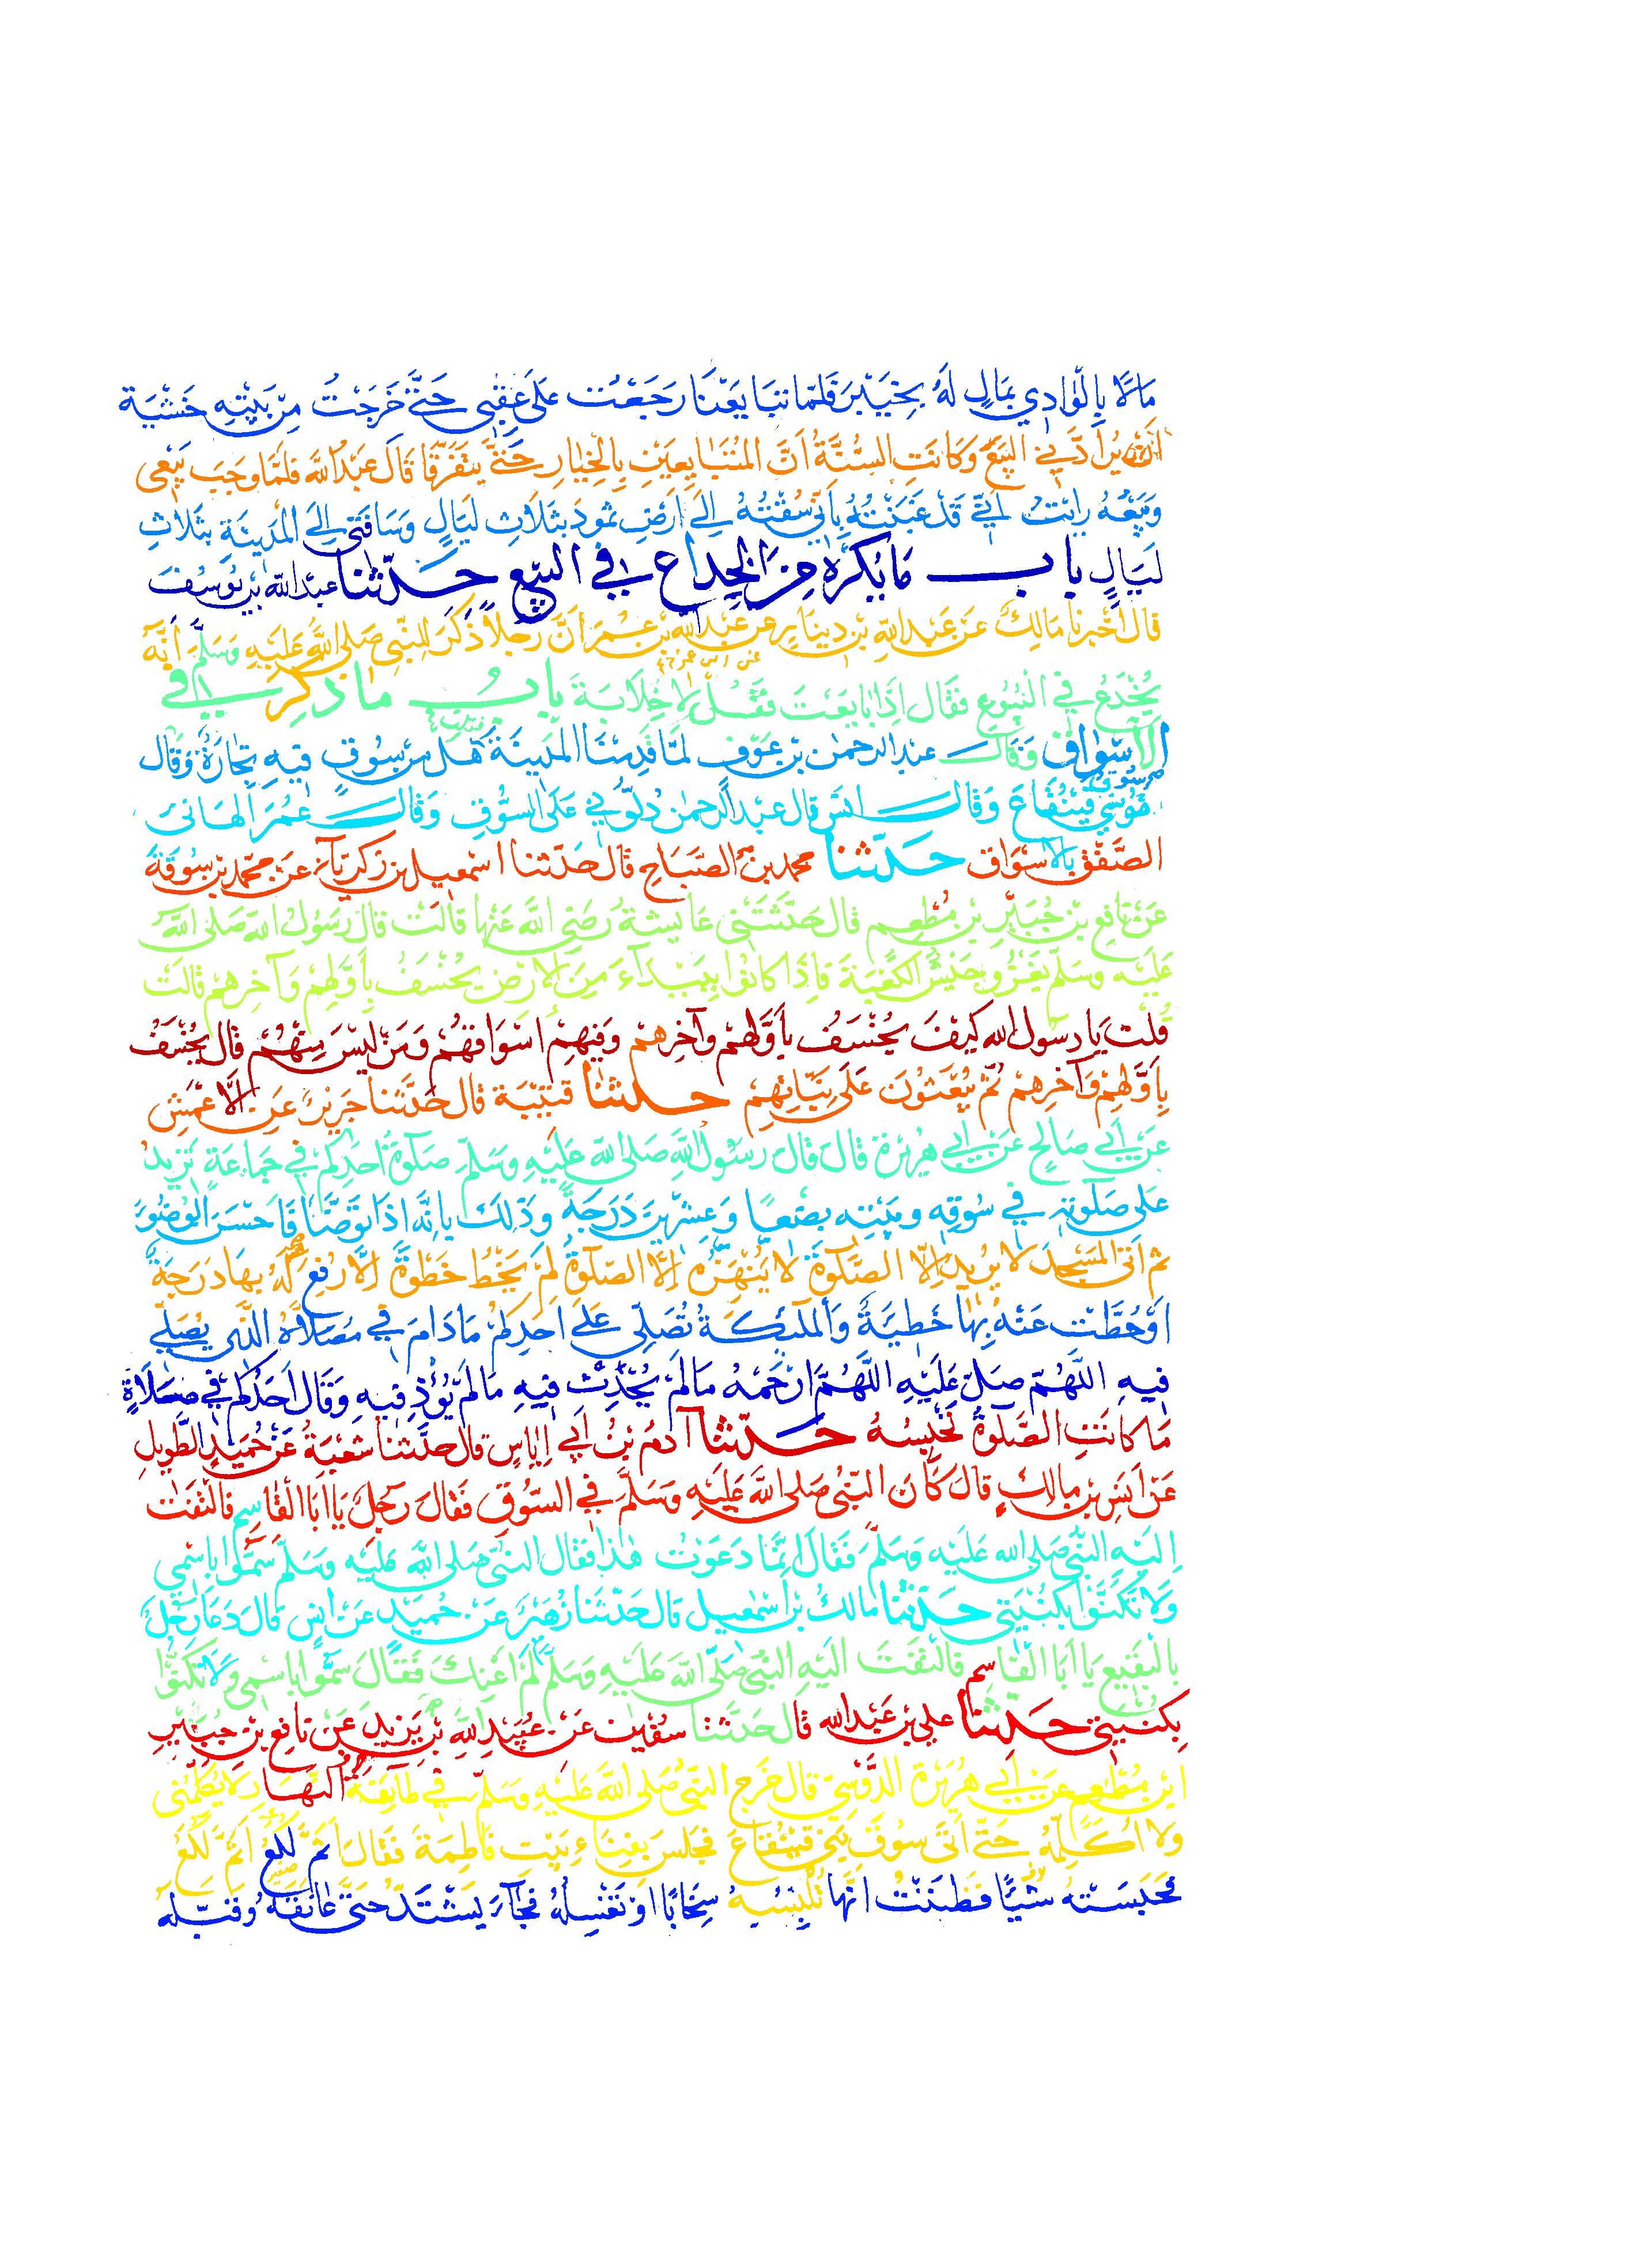 مَالًا بِالْوَادِي بِمَالٍ لَهُ بِخَيْبَرَ فَلَمَّا تَبَايَعْنَا رَجَعْتُ عَلَى عَقِبِي حَتَّى خَرَجْتُ مِنْ بَيْتِهِ خَشْيَةَ
اَنْ يُرَادَّنِي الْبَيْعَ وَكَانَتِ السُّنَّةُ اَنَّ الْمُتَبَايِعَيْنِ بِالْخِيَارِ حَتَّى يَتَفَرَّقَا قَالَ عَبْدُ اللَّهِ فَلَمَّا وَجَبَ بَيْعِي
وَبَيْعُهُ رَاَيْتُ اَنِّي قَدْ غَبَنْتُهُ بِاَنِّي سُقْتُهُ اِلَى اَرْضِ ثَمُودَ بِثَلَاثِ لَيَالٍ وَسَاقَنِي اِلَى الْمَدِينَةِ بِثَلَاثِ
لَيَالٍ باب مَا يُكْرَهُ مِنَ الْخِدَاعِ فِي الْبَيْعِ حَدَّثَنَا عبد الله بن يُوسُفَ
قال اَخْبرنا مَالِكٌ عَنْ عَبْدِ اللهِ بْنِ دِينَارٍ عَنْ عَبْدِ اللَّهِ بْنِ عُمَرَ اَنَّ رَجُلًا ذَكَرَ لِلنَّبِيِّ صَلى اللَّهُ عَلَيْهِ وَسَلَّمَ اَنَّهُ
يُخْدَعُ فِي الْبُيُوعِ فَقَال اِذَا بَايَعْتَ فَقُلْ لَا خِلَابَةَ بابُ ما ذُكِرَ في
الْاَسْوَاقِ وَقَالَ عبد الرحمٰن بن عَوْفٍ لَمَّا قَدِمْنَا الْمَدِينَةَ هَلْ مِنْ سُوقٍ فِيهِ تِجَارَةٌ وَقَال
سُوقُ قَيْنُقَاعَ وَقَال انس قال عبد الرحمٰن دُلُّونِي عَلَى السُّوقِ وَقَال عُمَرُ اَلْهَانِيَ
الصَّفْقُ بِالْاَسْوَاقِ حَدَّثنا محمد بن الصَّبَاحِ قَال حَدَّثنا اسْمٰعِيل بن زَكَرِيَّاءَ عَنْ مُحَمَّدِ بن سُوقَةَ
عَنْ نَافِعِ بْنِ جُبَيْرِ بْنِ مُطْعِمٍ قَال حَدَّثَتْنِي عَايِشَةُ رَضِيَ اللَّهُ عَنْهَا قَالَتْ قال رَسُولُ اللَّه صَلى اللَّهُ
عَلَيْهِ وَسَلَّمَ يَغْزُو جَيْشٌ الْكَعْبَةَ فَاِذَا كَانُوا بِبَيْدَاءَ مِنَ الْاَرْضِ يُخْسَفُ بِاَوَّلِهِمْ وَآخِرِهِمْ قَالَتْ
قُلْتُ يَا رسول الله كَيْفَ يُخْسَفُ بِاَوَّلِهِمْ وآخِرِهِمْ وَفِيهِمْ اَسْوَاقُهُمْ وَمَنْ لَيْسَ مِنْهُمْ قَال يُخْسَفُ
بِاَوَّلِهِمْ وَآخِرِهِمْ ثُمَّ يُبْعَثُونَ عَلَى نِيَّاتِهِمْ حدثنا قُتَيْبَة قال حَدَّثَنا جَرِيرٌ عَنِ الْاَعْمَشِ
عَنْ اَبِي صَالِحٍ عَنْ اَبِي هُرَيْرَةَ قَالَ قَالَ رَسُولُ اللَّهِ صَلى اللَّهُ عَلَيْهِ وَسَلَّمَ صَلَوةُ اَحَدِكُمْ فِي جَمَاعَةٍ تَزِيدُ
عَلى صَلَوتِهِ فِي سُوقِهِ وَبَيْتِهِ بِضْعًا وَعِشْرِينَ دَرَجَةً وَذٰلِكَ بِاَنَّهُ اِذَا تَوَضَّاَ فَاَحْسَنَ الْوُضُوءَ
ثم اَتَى الْمَسْجِدَ لَا يُرِيدُ اِلَّا الصَّلَوةَ لَا يَنْهَزُهُ اِلَّا الصَّلَوةُ لَمْ يَخْطُ خَطْوَةً اِلَّا رُفِعَ لَهُ بِهَا دَرَجَةً
اَوْ حُطَّتْ عَنْهُ بِهَا خَطِيَةٌ وَالْمَلَيكَةُ تُصَلِّي عَلَى اَحَدِكُمْ مَا دَامَ فِي مُصَلَّاهُ الَّذِي يُصَلِّي
فِيهِ اللَّهُمَّ صَلِّ عَلَيْهِ اللَّهُمَّ ارْحَمْهُ مَا لَمْ يُحْدِثْ فِيهِ مَا لَمْ يُؤْذِ فِيهِ وَقَال اَحَدُكُمْ فِي صَلَاةٍ
مَا كَانَتِ الصَّلَوةُ تَحْبِسُهُ حَدّثنا آدَمُ بْنُ اَبِي اِيَاسٍ قال حدَّثنا شُعْبَةُ عَنْ حُمَيْدٍ الطَّوِيلِ
عَنْ اَنَسِ بْنِ مالِكٍ قال كَانَ النَّبِيُّ صَلى اللَّهُ عَلَيْهِ وَسَلَّمَ فِي السُّوقِ فَقَالَ رَجُلٌ يَا اَبَا الْقَاسِمِ فَالْتَفَتَ
اِلَيْهِ النَّبِيُّ صَلى الله عَلَيْهِ وَسَلَّمَ فَقَالَ اِنَّمَا دَعَوْتُ هٰذَا فَقَال النَّبِيُّ صَلى اللَّهُ عَلَيْهِ وَسَلَّمَ سَمُّوا بِاسْمِي
وَلَا تَكَنَّوْا بِكُنْيَتِي حَدّثنا مَالكُ بْنُ اسْمٰعِيل قال حَدَّثَنَا زُهَيْرٌ عَنْ حُمَيْدٍ عَنْ انَسٍ قالَ دَعَا رَجُلٌ
بِالْبَقِيعِ يَا اَبَا الْقَاسِمِ فَالْتَفَتَ اِلَيْهِ النَّبِيُّ صَلَّى اللَّهُ عَلَيْهِ وَسَلَّمَ لَمْ اَعْنِكَ فَقَالَ سَمُّوا بِاسْمِي وَلَا تَكَنَّوْا
بِكُنْيَتِي حَدّثنا علي بْن عَبْد الله قال حَدَّثَنَا سُفْيٰن عَنْ عُبَيْدِ اللَّهِ بْنِ يَزِيدَ عَنْ نَافِعِ بْنِ جُبَيْرِ
ابْنِ مُطْعِمٍ عَنْ اَبِي هُرَيْرَةَ الدَّوْسِيِّ قَال خَرَجَ النَّبِيُّ صَلَى اللَّهُ عَلَيْهِ وَسَلَّمَ فِي طَائِفَةِ النَّهَارِ لَا يُكَلِّمُنِي
وَلَا اُكَلِّمُهُ حَتَّى اَتَى سُوقَ بَنِي قَيْنُقَاعَ فَجَلَسَ بِفِنَاءِ بَيْتِ فَاطِمَةَ فَقَالَ اَثَمَّ لُكَعُ اَثَمَّ لُكَعُ
فَحَبَسَتْهُ شَيْئًا فَظَنَنْتُ اَنَّهَا تُلْبِسُهُ سِخَابًا اَوْ تُغَسِّلُهُ فَجَاءَ يَشْتَدُّ حَتَّى عَانَقَهُ وَقَبَّلَهُ